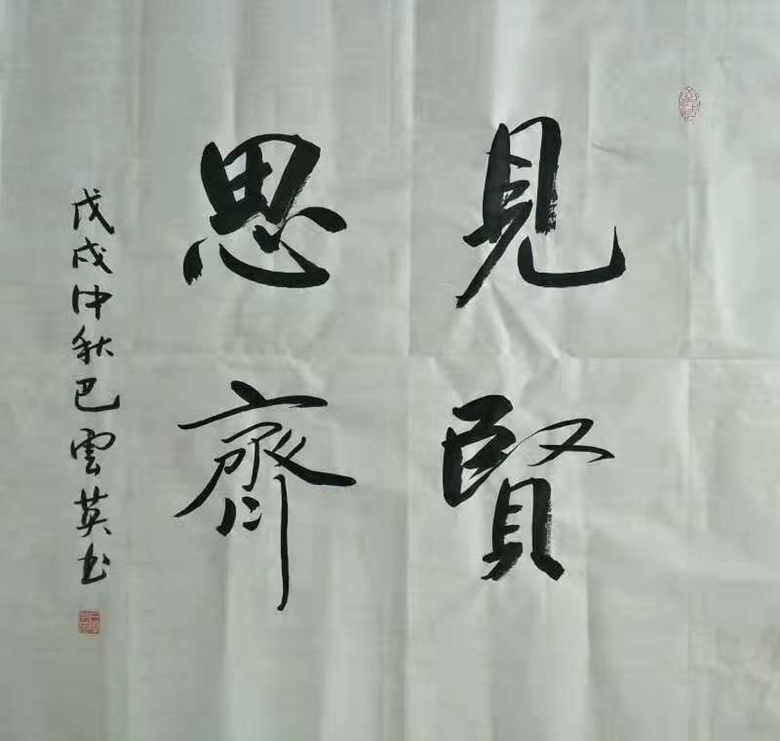 見賢
思齊
戊戌仲秋巴雲英书